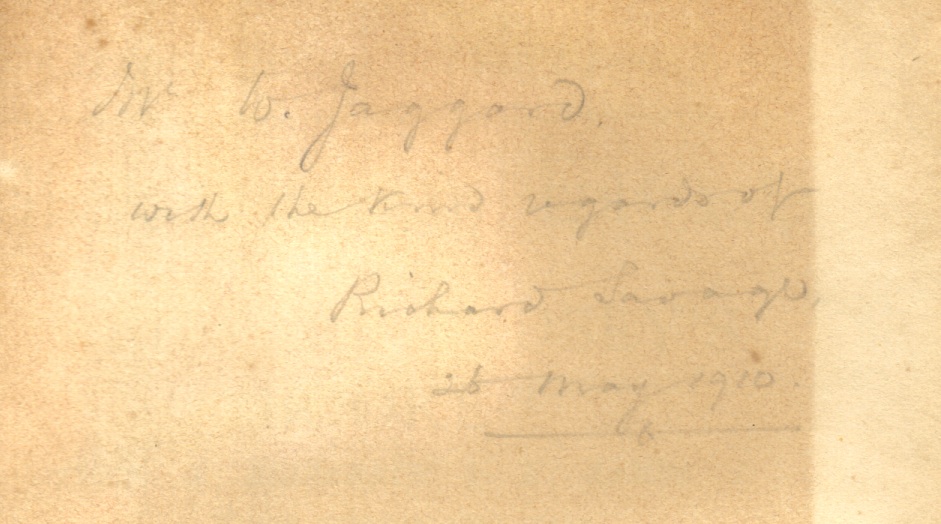 Mr W. Jaggard.
with the kind regards of
Richard Savage,
26 May 1910.